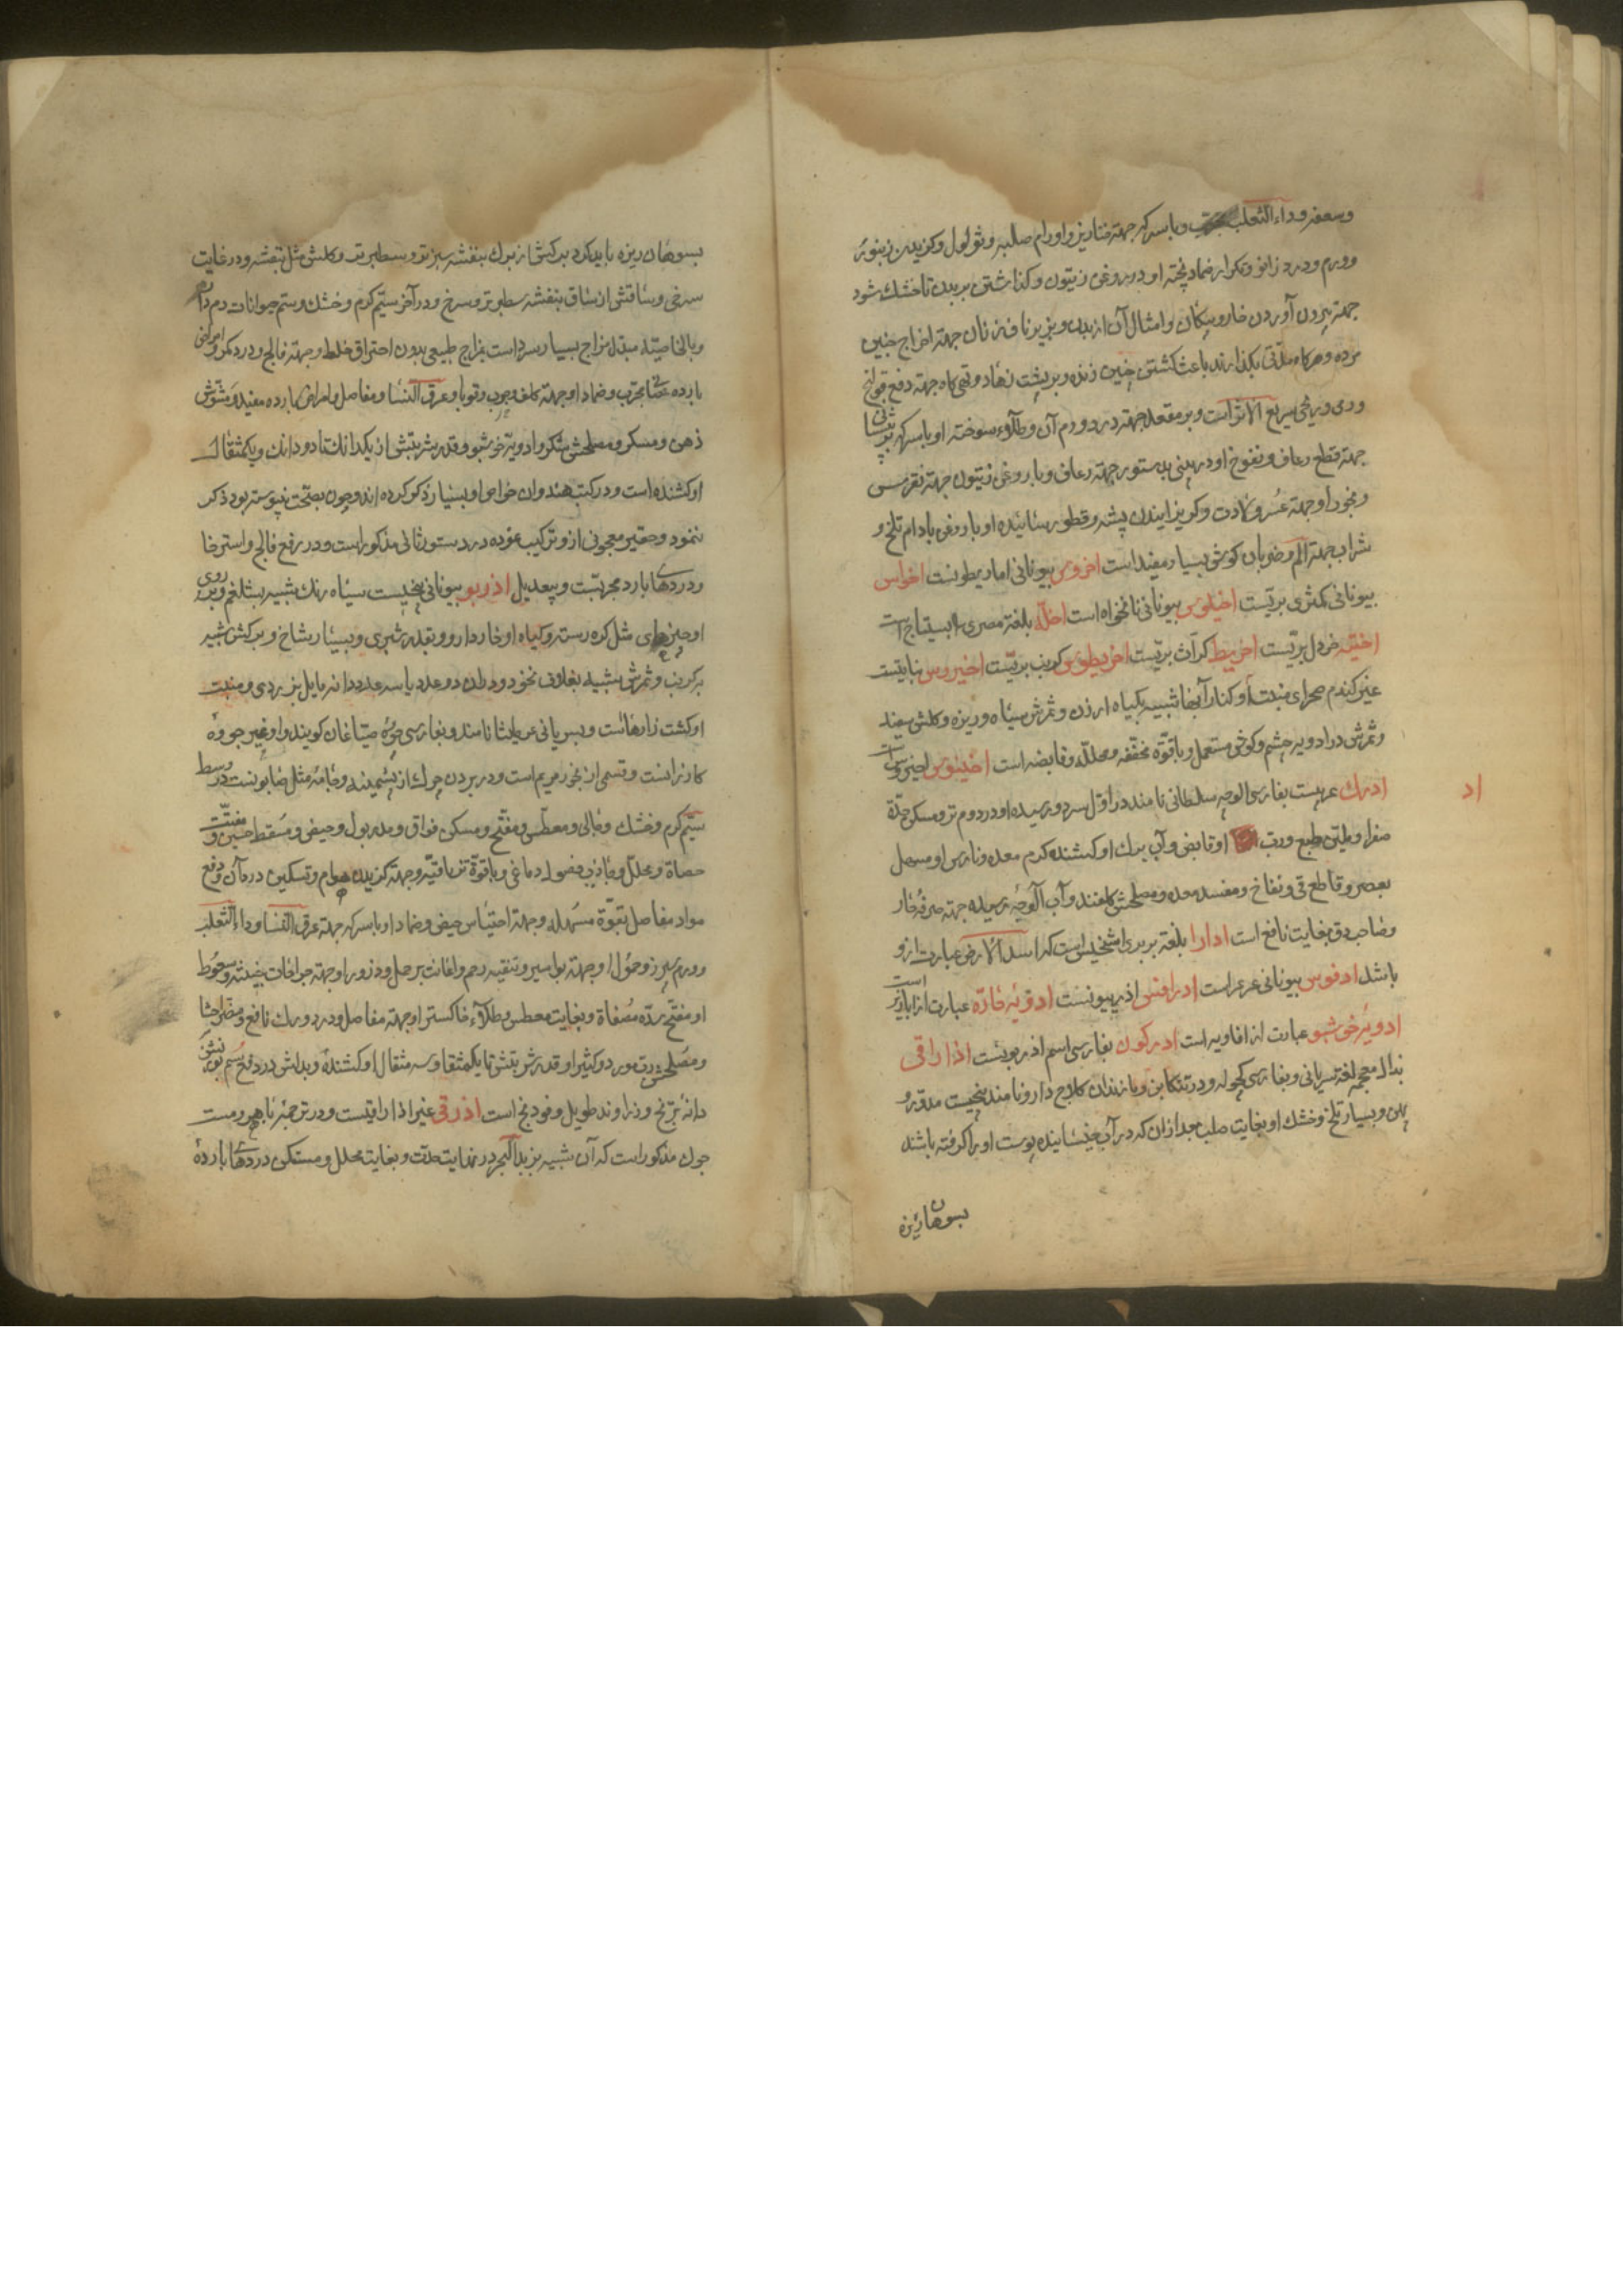 وسعفه وداء الثعلب مجرب وبا سرکه جهته خنازیر واورام صلبه وثولول وکزیدن زنبور
وورم ودرد زانو وتکرار ضماد پخته او در روغن زیتون وکذاشتن بر بدن تا خشك شود
جهته بیرون آوردن خار وپیکان وامثال آن از بدن وبزیر ناف زنان جهته اخراج جنین
مرده وهرکاه مدّتی بکذارند باعث کشتن جنین زنده وبر پشت زهار وتهی کاه جهته دفع قولنج
وردی وریحی سریع الاثر است وبر مقعد جهته درد وورم آن وطلاء سوخته او با سرکه بر پیشانی
جهته قطع رعاف ونفوخ او در بینی بدستور جهته رعاف وبا روغن زیتون جهته نقرس
وبخور او جهته عسر ولادت وکریزانیدن پشه وقطور سائیده او با روغن بادام تلخ و
شراب جهته الم وضربان کوش بسیار مفید است اخروس بیونانی اماریطونست اخراس
بیونانی کمثری برّیست اخیلوس بیونانی نانخواه است اخلّه بلغة مصری بسیتاج است
اخینه خردل برّیست اخریط کراث برّیست اخریطوس کرنب برّیست اخیروس نباتیست
غیر کندم صحرای منبت او کنار آبها شبیه بکیاه ارزن وثمرش سیاه وریزه وکلش سفید
وثمرش در ادویه چشم وکوش مستعمل وبا قوّة مخففه ومحلله وقابضه است اخینوس اخیروس است
اد
ادرك عربیست بفارسی الوچه سلطانی نامند در اوّل سرد ورسیده او در دوم تر ومسکن حدّة
صفرا وملیّن طبع ورب او قابض وآب برك او کشنده کرم معده ونارس او مسهل
بعصر وقاطع قی ونفاخ ومفسد معده ومصلحش کلقند وآب آلوچه رسیده جهته سرفه حار
وصاحب دق بغایت نافع است ادارا بلغة بربری اشخیص است که اسد الارض عبارت ازو
باشد ادفوس بیونانی عرعر است ادرافس اذریونست ادویه حارّه عبارت از ابازیر است
ادویهٔ خوشبو عبارت از افاویه است ادرکون بفارسی اسم اذریونست اذاراقی
بذال معجمه لغة سریانی وبفارسی کچوله ودر تنکابن ومازندران کلاج دارو نامند بیخیست مدوّر و
پهن وبسیار تلخ وخشك او بغایت صلب بعد از ان که در آب خیسانیده پوست او را کرفته باشند
بسوهان ریزه
بسوهان ریزه باید کرد برکش از برك بنفشه سبزتر وسطبرتر وکلش مثل بنفشه ودر غایت
سرخی وساقش از ساق بنفشه سطبرتر وسرخ ودر آخر سیّم کرم وخشك وسم حیوانات دم دار
وبالخاصیّته مبدل مزاج بسیار سرد است بمزاج طبیعی بدون احتراق خلط وجهته فالج ودرد کمر وامراض
بارده عصبانی مجرب وضماد او جهته کلف وجرب وقوبا وعرق النسا ومفاصل وامراض بارده مفید ومشوش
ذهن ومسکر ومصلحش شکر وادویه خوشبو وقدر شربتش از یکدانك تا دو دانك ویکمثقال
او کشنده است ودر کتب هندوان خواص او بسیار ذکر کرده اند وچون بصحت نپیوسته بود ذکر
ننمود وحقیر معجونی ازو ترکیب نموده در دستور ثالی مذکور است ودر رفع فالج واسترخا
ودردهای بارد مجربست وبیعدیل اذربو بیونانی بیخیست سیاه رنك شبیه بشلغم وبر روی
او چیزهای مثل کره رسته وکیاه او خاردار وبقدر شبری وبسیار شاخ وبرکش شبیه
ببرك کرنب وثمرش شبیه بغلاف نخود ودر ان دو عدد یا سه عدد دانه مایل بزردی ومنبت
او کشت زارهاست وبسریانی عرطنیثا نامند وبفارسی چوبهٔ صبّاغان کویند واو غیر چوبهٔ
کازرانست وقسمی از بخور مریم است ودر بردن چرك از پشمینه وجامه مثل صابونست در وسط
سیّم کرم وخشك وجالی ومعطّس ومفتّح ومسکن فواق ومدر بول وحیض ومسقط جنین ومفتّت
حصاة ومحلل وجاذب فضول دماغی وبا قوّة تریاقیّه وجهته کزیدن هوام وتسکین درد آن ودفع
مواد مفاصل بقوّة مسهله وجهته احتباس حیض وضماد او با سرکه جهته عرق النسا وداء الثعلب
وورم سپرز وحمول او جهته بواسیر وتنقیه رحم واعانت بر حمل وذرور او جهته جراحات خبیثه وسعوط
او مفتّح سدّه مصفاة وبغایت معطس وطلاء خاکستر او جهته مفاصل ودرد ورك نافع ومضر احشا
ومصلحش رب مورد وکثیرا وقدر شربتش تا یکمثقال وسه مثقال او کشنده وبدلش در دفع سم بوزنش
دانهٔ ترنج وزراوند طویل وفودنج است اذرقی غیر اذاراقیست ودر ترجمه ناهورمست
چون مذکور است که آن شبیه بزبد البحر در نهایت حدّت وبغایت محلل ومسکن دردهای بارده